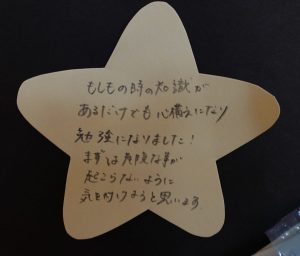 もしもの時の知識が
あるだけでも心構えになり
勉強になりました！
まずは危険な事が
起こらないように
気を付けようと思います